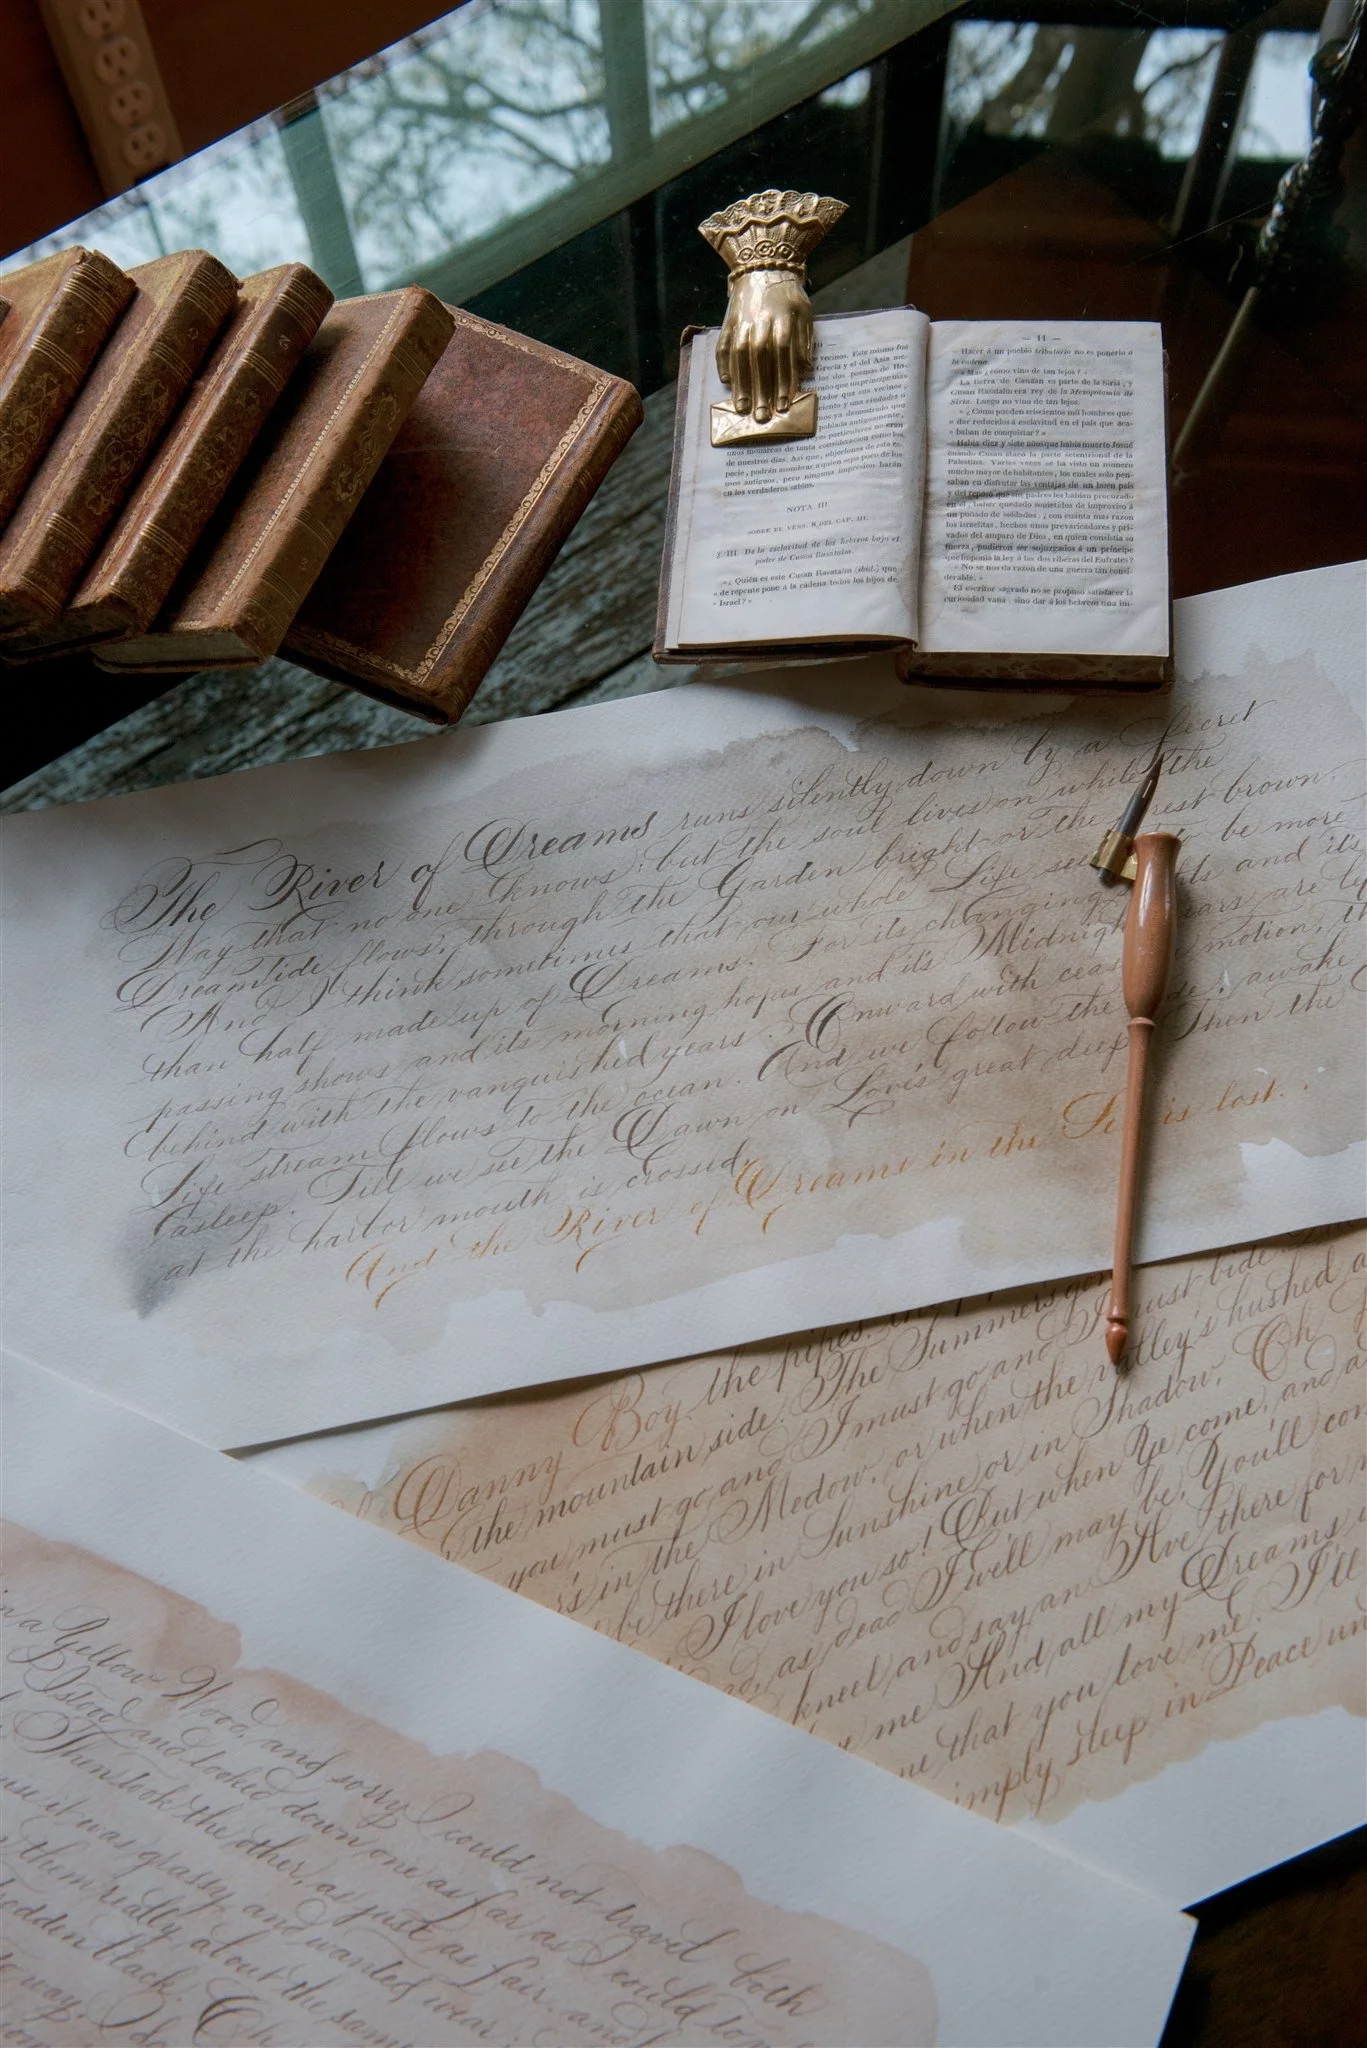 vecinos. Este mismo fué
Grecia y el del Asia me-
los dos poemas de Ho-
extraño que un príncipe mas
que sus vecinos,
ciento y una ciudades o
ya demostrado que
poblada antiguamente,
reyes particulares no eran
unos monarcas de tanta consideracion como los
de nuestros dias. Asi que, objeciones de esta es-
pecie, podrán asombrar á quien sepa poco de los
usos antiguos, pero ninguna impresion harán
en los verdaderos sabios.
NOTA III
SOBRE EL VERS. 8 DEL CAP. III.
§ III. De la esclavitud de los hebreos bajo el
poder de Cusan Rasataim.
«¿Quién es este Cusan Rasataim (ibid.) que
« de repente pone á la cadena todos los hijos de
« Israel? »
— 11 —
Hacer á un pueblo tributario no es ponerlo á
la cadena.
« Mas ¿cómo vino de tan lejos? »
La tierra de Canáan es parte de la Siria, y
Cusan Rasataim era rey de la Mesopotamia de
Siria. Luego no vino de tan lejos.
« ¿Cómo pueden seiscientos mil hombres que-
« dar reducidos á esclavitud en el país que aca-
« baban de conquistar? »
Habia diez y siete años que habia muerto Josué
cuando Cusan atacó la parte setentrional de la
Palestina. Varias veces se ha visto un número
mucho mayor de habitantes, los cuales solo pen-
saban en disfrutar las ventajas de un buen país
y del reposo que sus padres les habian procurado
en él, haber quedado sometidos de improviso á
un puñado de soldados: ¿con cuánta mas razon
los israelitas, hechos unos prevaricadores y pri-
vados del amparo de Dios, en quien consistia su
fuerza, pudieron ser sojuzgados á un príncipe
que imponia la ley á las dos riberas del Eufrates?
« No se nos da razon de una guerra tan consi-
derable. »
El escritor sagrado no se propuso satisfacer la
curiosidad vana, sino dar á los hebreos una im-
The River of Dreams runs silently down by a Secret
Way that no one knows: but the soul lives on while the
Dreamtide flows, through the Garden bright or the brown.
And I think sometimes that our whole Life to be more
than half made up of Dreams. For its changing and it's
passing shows and its morning hopes and it's Midnight are
behind with the vanquished years: Onward with motion,
Life stream flows to the ocean. And we follow the awake
asleep. Till we see the Dawn on Love's great deep Then the
at the harbor mouth is crossed,
And the River of Dreams in the is lost.
Danny Boy the pipes.
the mountain side. The Summer's gone
you must go and I must go and I must bide.
in the Medow, or when the valley's hushed
be there in Sunshine or in Shadow, Oh
I love you so! But when Ye come, and
as dead I well may be, You'll
kneel and say an Ave there for
me And all my Dreams
that you love me. I'll
simply sleep in Peace
in a Yellow Wood, and sorry I could not travel both
I stood and looked down one as far as I could
Then took the other, as just as fair, and
it was grassy and wanted wear;
them really about the same
trodden black. Oh
way. I